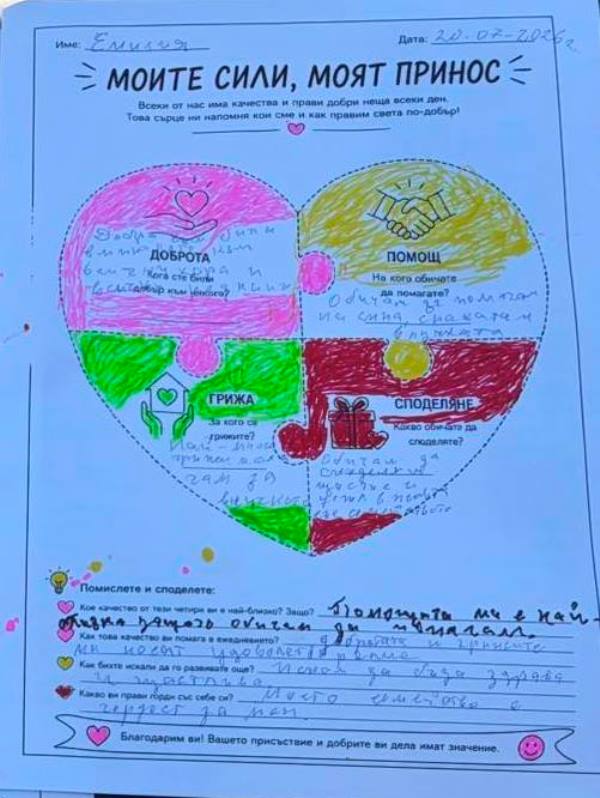 Име: Емилия Дата: 20-07-2026г
МОИТЕ СИЛИ, МОЯТ ПРИНОС
Всеки от нас има качества и прави добри неща всеки ден.
Това сърце ни напомня кои сме и как правим света по-добър!
ДОБРОТА
Кога сте били
добър към някого?
Добра
хора и
ПОМОЩ
На кого обичате
да помагате?
Обичам да помагам
на сина, снахата и
внучката
ГРИЖА
За кого се
грижите?
Най-много
грижи пола
гам за
внучката
СПОДЕЛЯНЕ
Какво обичате да
споделяте?
Обичам да
споделям
щастие и
успех в
семейството
Помислете и споделете:
Кое качество от тези четири ви е най-близко? Защо? Помощта ми е най-
близка защото обичам да помагам.
Как това качество ви помага в ежедневието? добротата и грижите
ми носят удовлетворение
Как бихте искали да го развивате още? Искам да бъда здрава
и щастлива
Какво ви прави горди със себе си? Моето семейство е
гордост за мен.
Благодарим ви! Вашето присъствие и добрите ви дела имат значение.